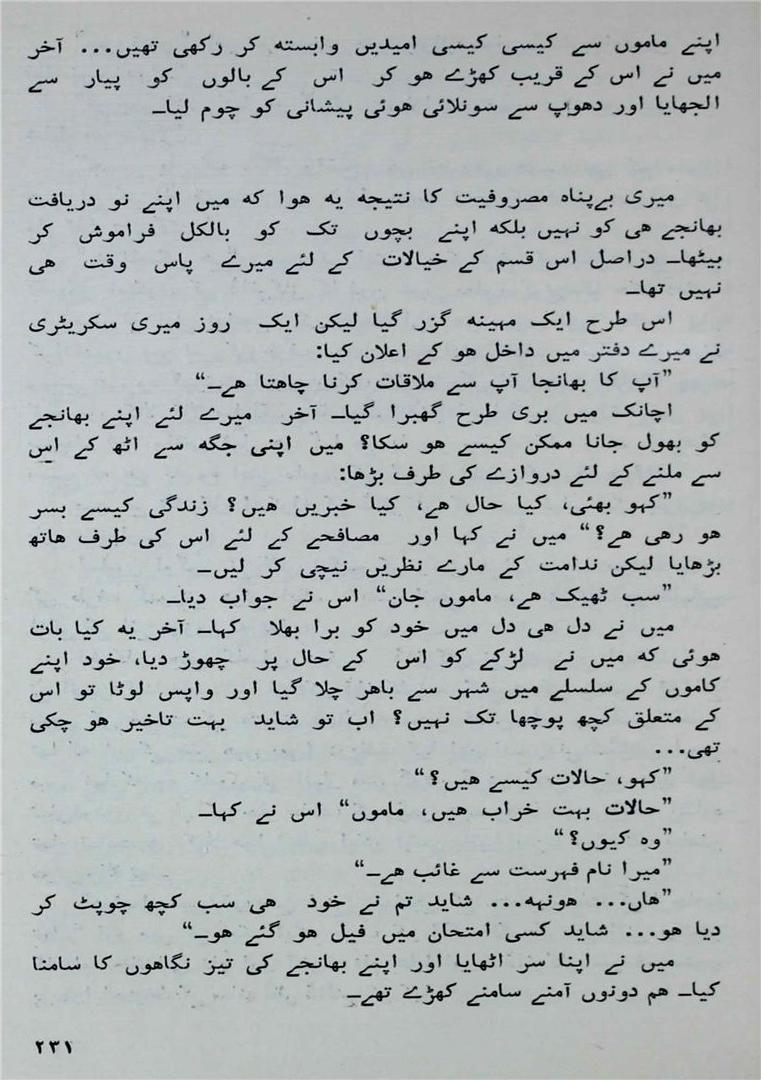 اپنے ماموں سے کیسی کیسی امیدیں وابستہ کر رکھی تھیں... آخر
میں نے اس کے قریب کھڑے ھو کر اس کے بالوں کو پیار سے
الجھایا اور دھوپ سے سونلائی ھوئی پیشانی کو چوم لیا۔
میری بےپناہ مصروفیت کا نتیجہ یہ ھوا کہ میں اپنے نو دریافت
بھانجے ھی کو نہیں بلکہ اپنے بچوں تک کو بالکل فراموش کر
بیٹھا۔ دراصل اس قسم کے خیالات کے لئے میرے پاس وقت ھی
نہیں تھا۔
اس طرح ایک مہینہ گزر گیا لیکن ایک روز میری سکریٹری
نے میرے دفتر میں داخل ھو کے اعلان کیا:
”آپ کا بھانجا آپ سے ملاقات کرنا چاھتا ھے۔“
اچانک میں بری طرح گھبرا گیا۔ آخر میرے لئے اپنے بھانجے
کو بھول جانا ممکن کیسے ھو سکا؟ میں اپنی جگہ سے اٹھ کے اس
سے ملنے کے لئے دروازے کی طرف بڑھا:
”کہو بھئی، کیا حال ھے، کیا خبریں ھیں؟ زندگی کیسے بسر
ھو رھی ھے؟“ میں نے کہا اور مصافحے کے لئے اس کی طرف ھاتھ
بڑھایا لیکن ندامت کے مارے نظریں نیچی کر لیں۔
”سب ٹھیک ھے، ماموں جان“ اس نے جواب دیا۔
میں نے دل ھی دل میں خود کو برا بھلا کہا۔ آخر یہ کیا بات
ھوئی کہ میں نے لڑکے کو اس کے حال پر چھوڑ دیا، خود اپنے
کاموں کے سلسلے میں شہر سے باھر چلا گیا اور واپس لوٹا تو اس
کے متعلق کچھ پوچھا تک نہیں؟ اب تو شاید بہت تاخیر ھو چکی
تھی...
”کہو، حالات کیسے ھیں؟“
”حالات بہت خراب ھیں، ماموں“ اس نے کہا۔
”وہ کیوں؟“
”میرا نام فہرست سے غائب ھے۔“
”ھاں... ھونہہ... شاید تم نے خود ھی سب کچھ چوپٹ کر
دیا ھو... شاید کسی امتحان میں فیل ھو گئے ھو۔“
میں نے اپنا سر اٹھایا اور اپنے بھانجے کی تیز نگاھوں کا سامنا
کیا۔ ھم دونوں آمنے سامنے کھڑے تھے۔
۲۳۱